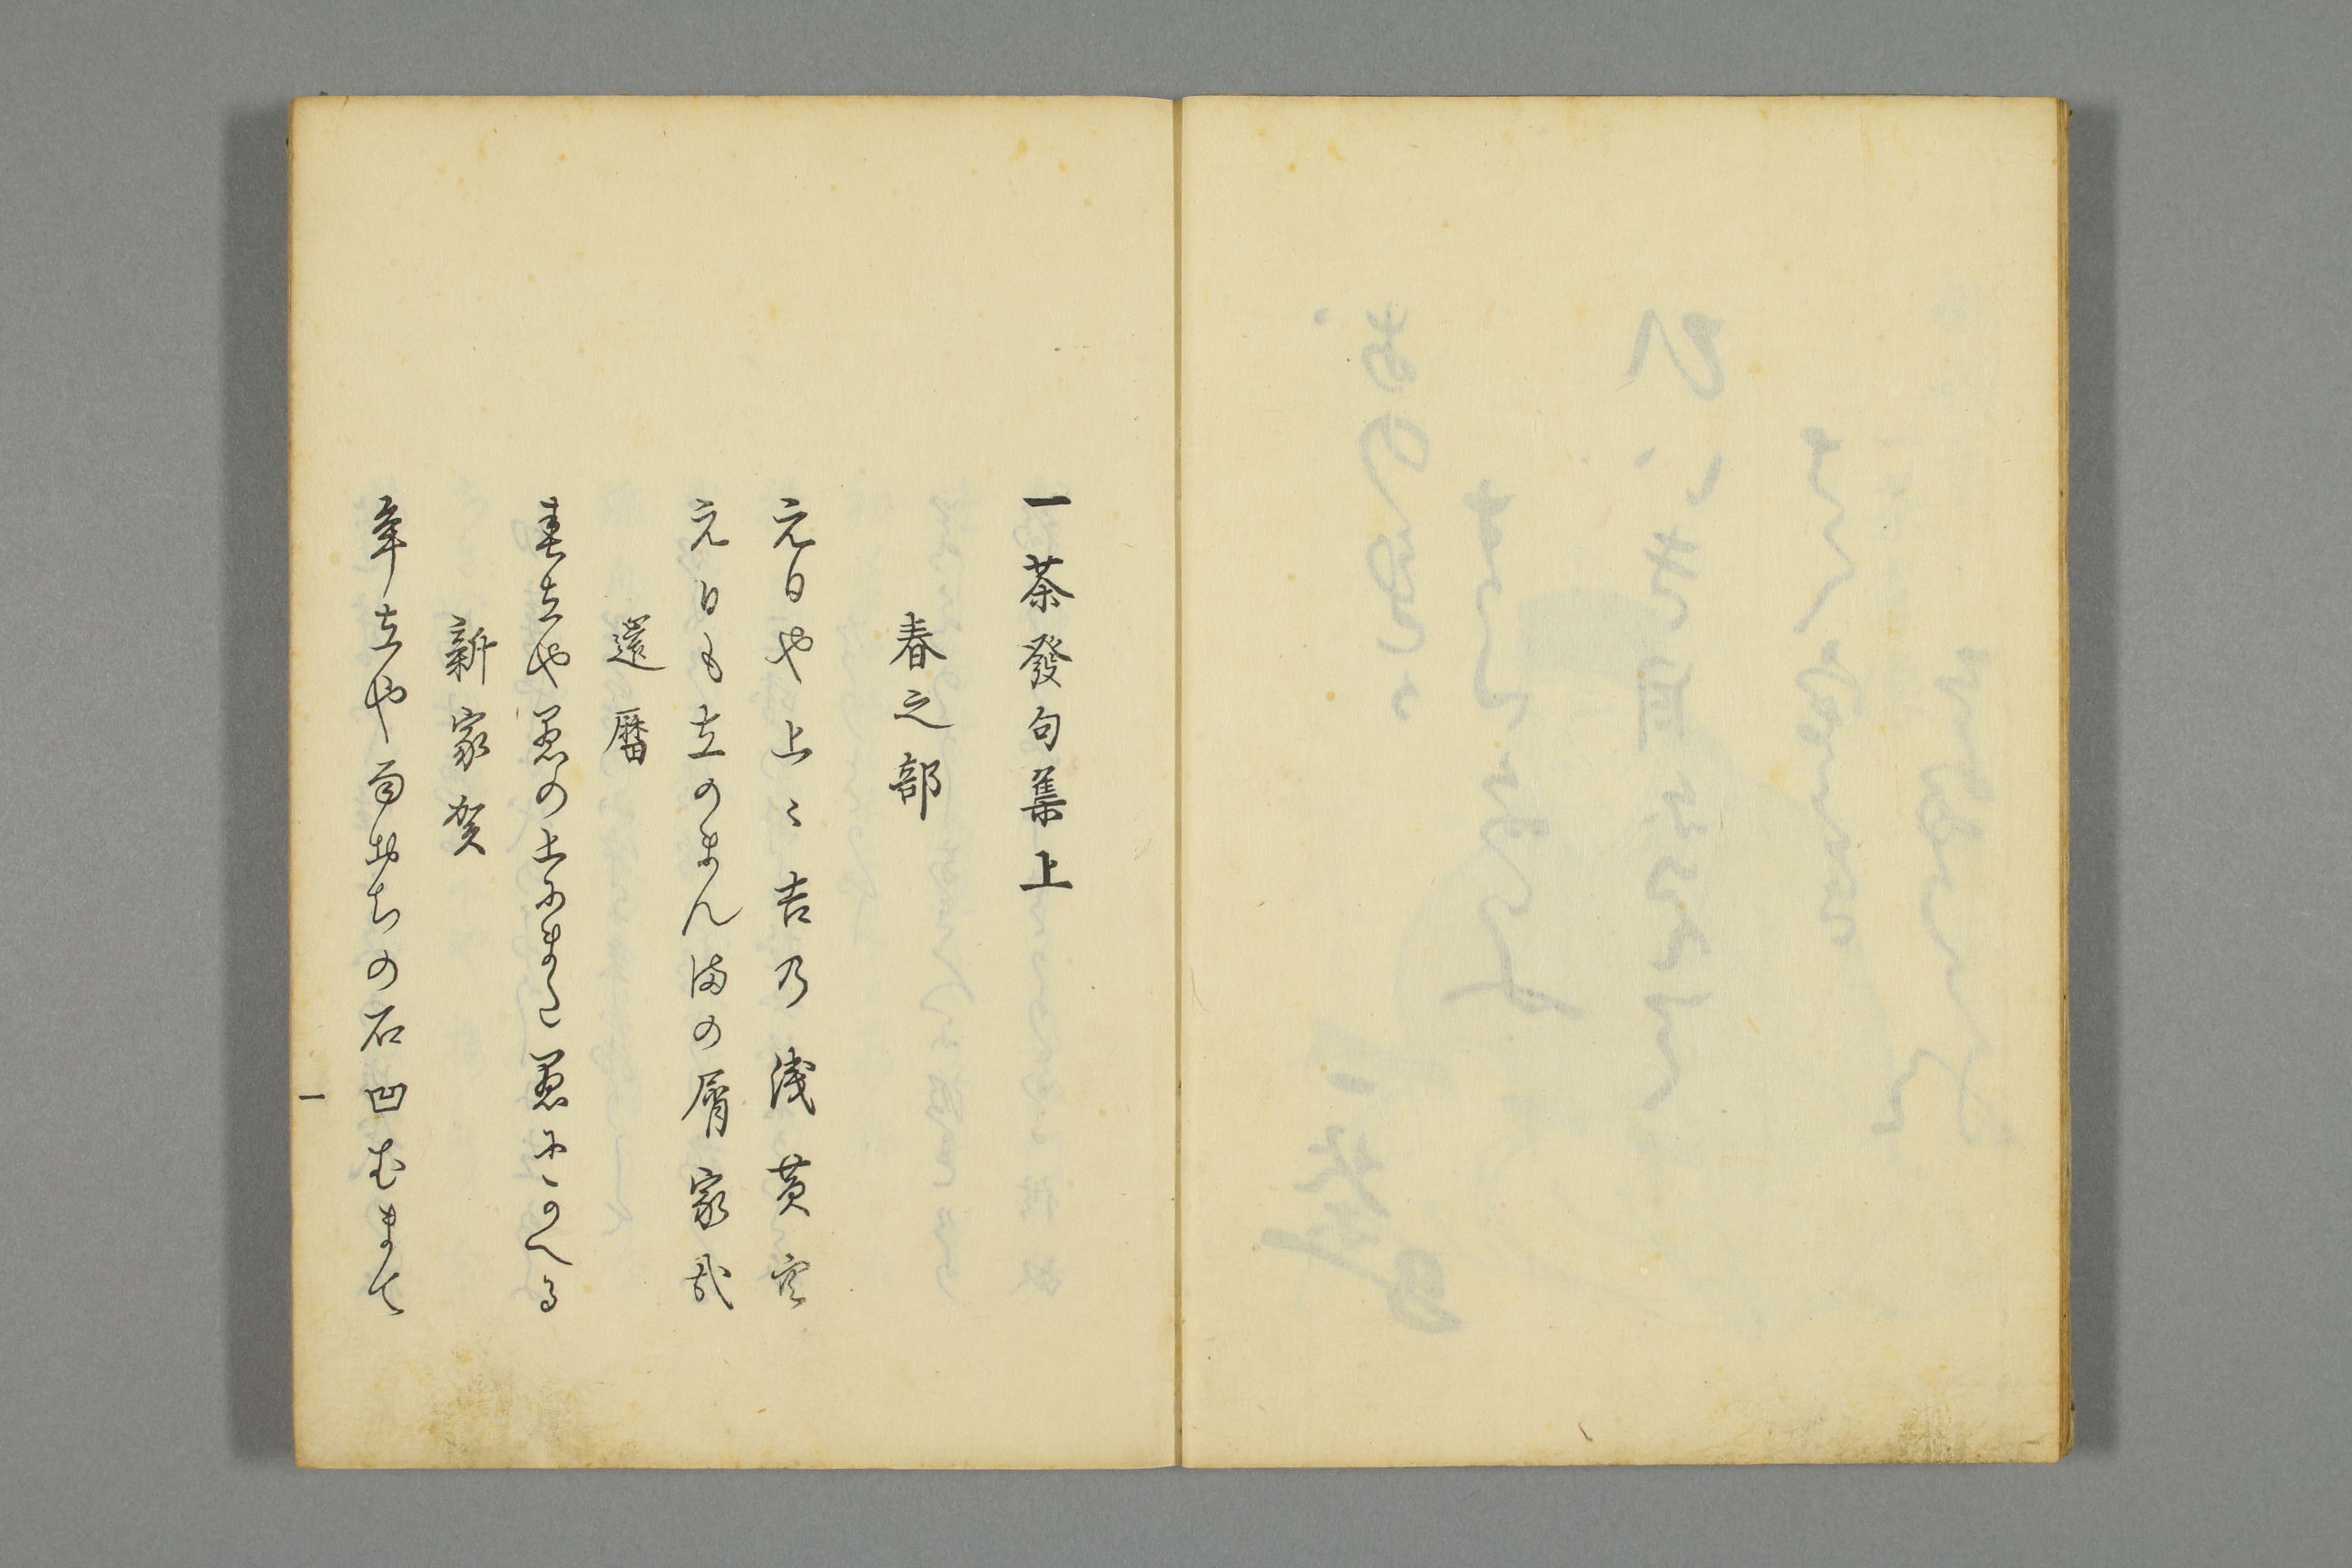 一茶發句集上
春之部
元日や上々吉乃浅黄空
元日も立のまんまの屑家哉
還暦
春立や愚の上にまた愚にかへる
新家賀
年立や雨おちの石凹むまて
一